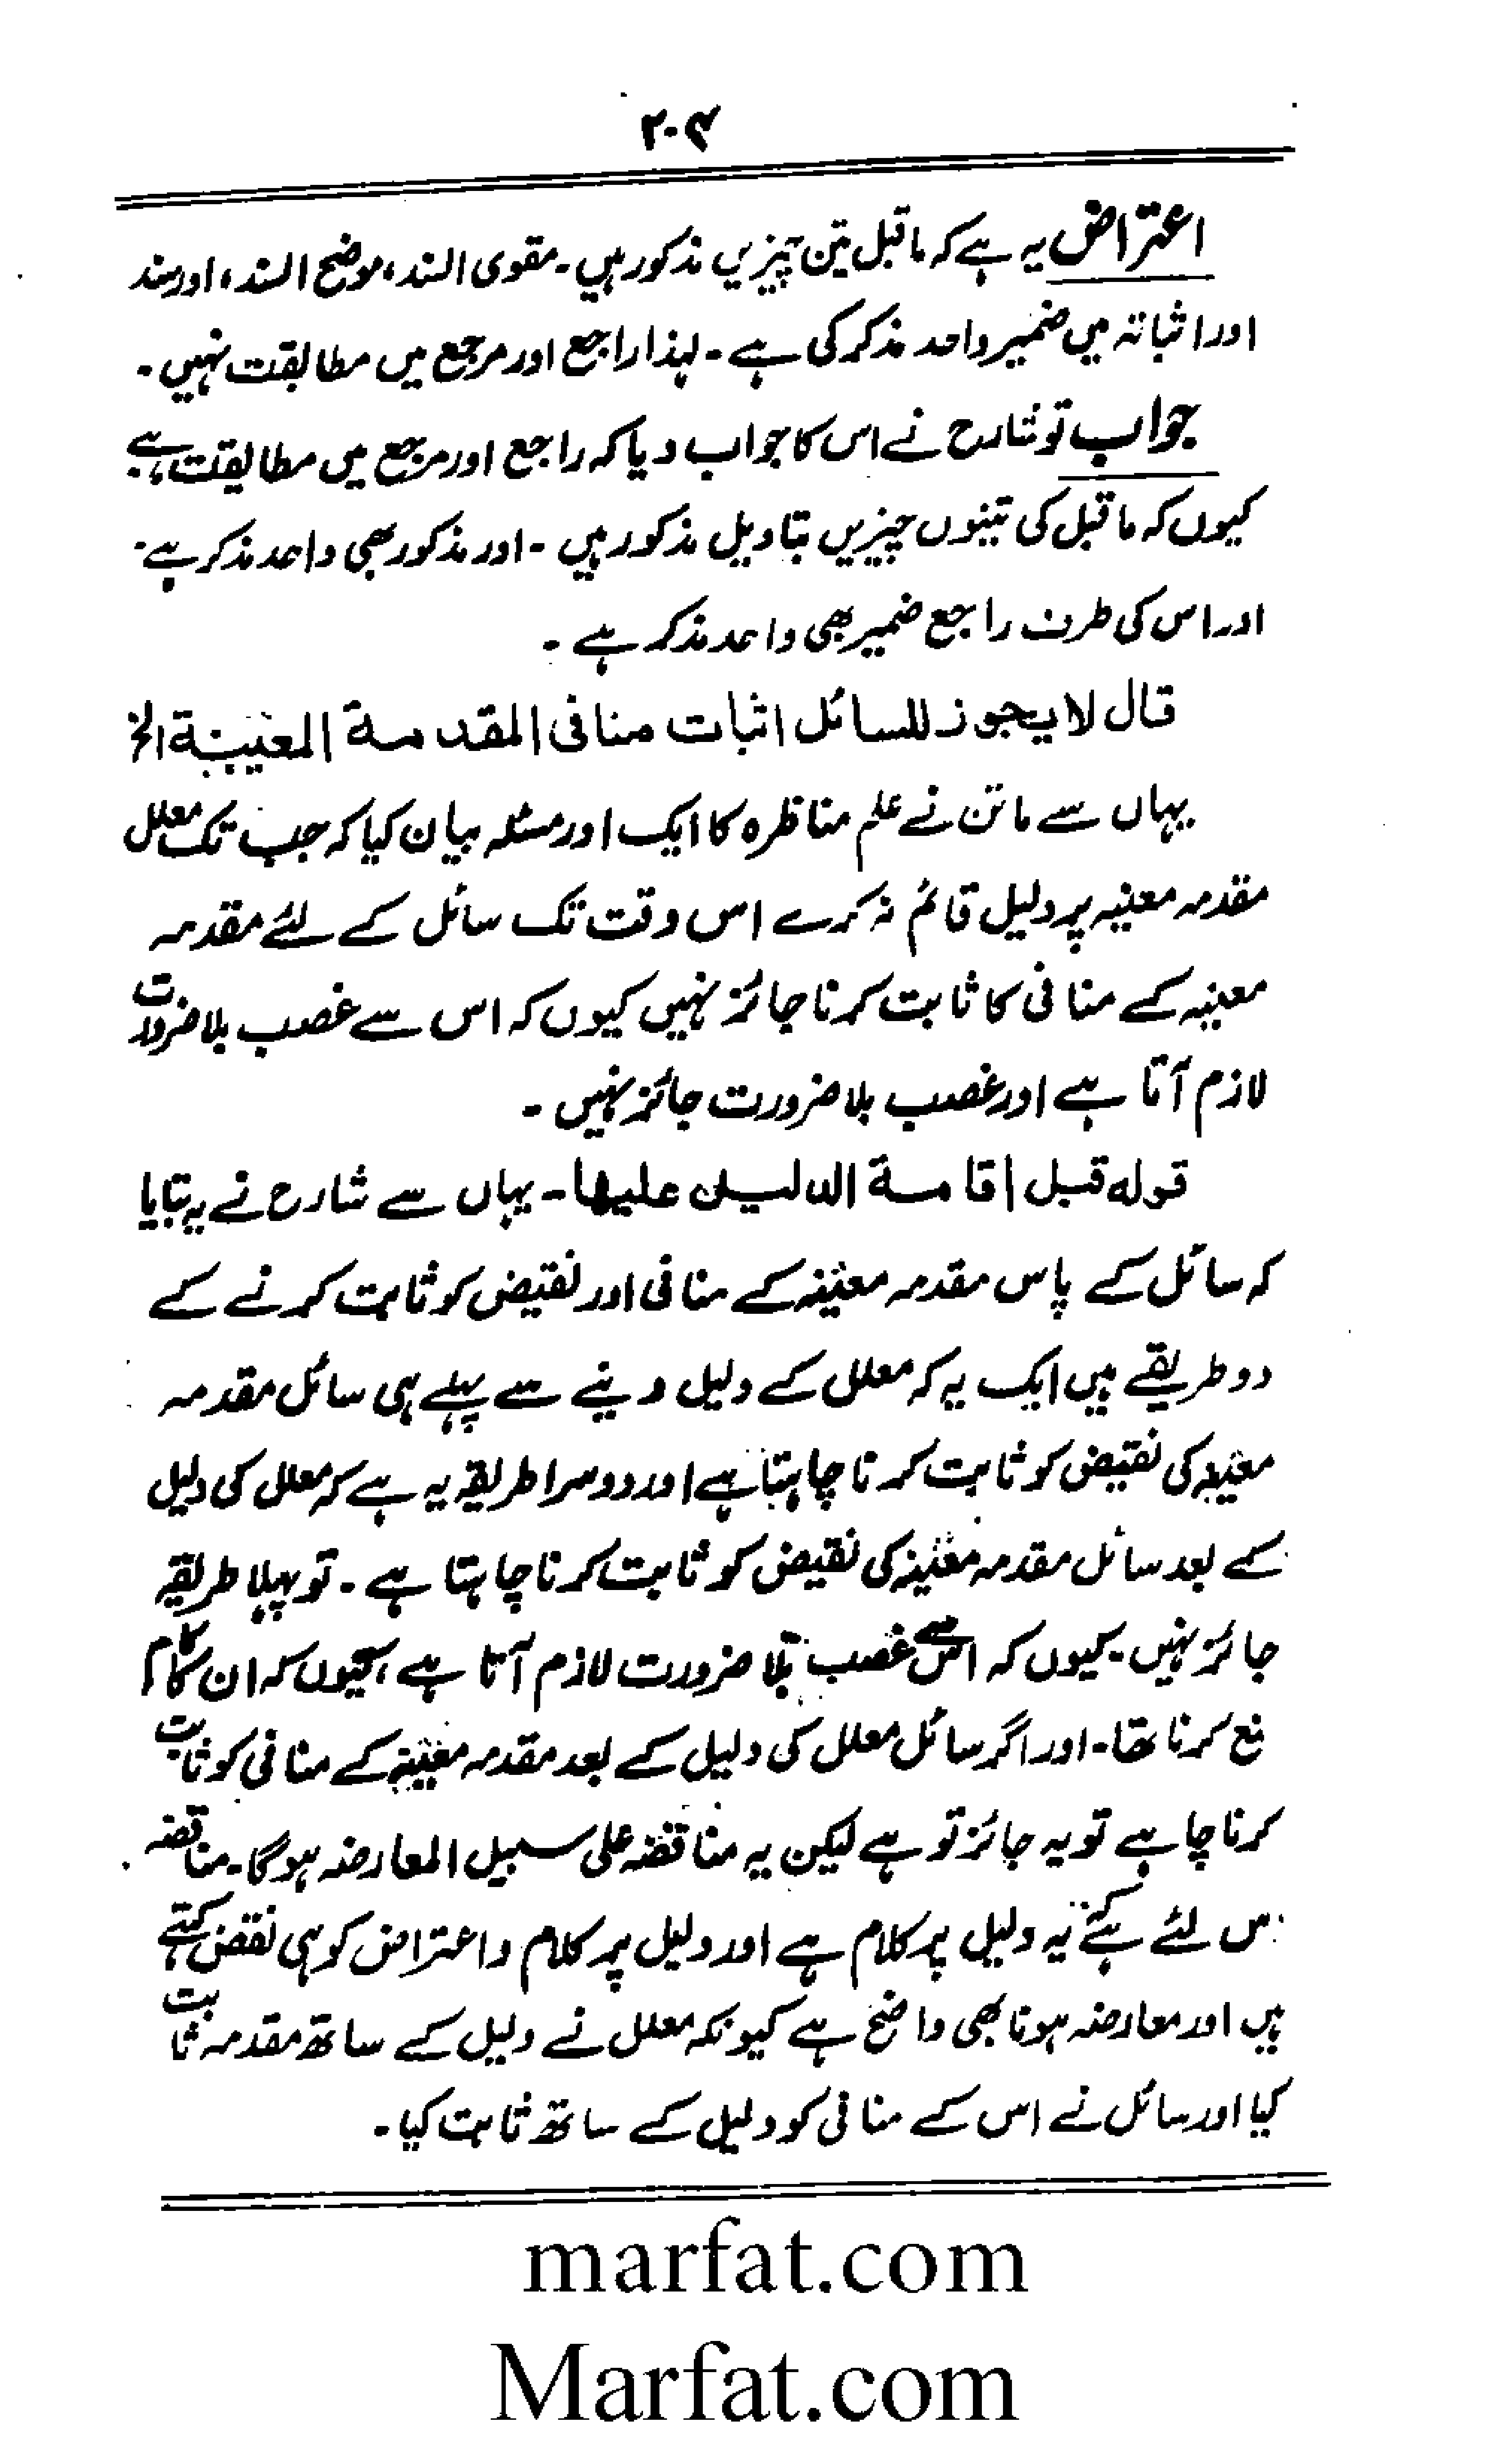 ۲۰۴
اعتراض یہ ہے کہ ماقبل تین چیزیں مذکور ہیں۔ مقوی السند، موضح السند، اور سند
اور اثباتہ میں ضمیر واحد مذکر کی ہے۔ لہذا راجع اور مرجع میں مطابقت نہیں۔
جواب تو شارح نے اس کا جواب دیا کہ راجع اور مرجع میں مطابقت ہے
کیوں کہ ماقبل کی تینوں چیزیں بتاویل مذکور ہیں۔ اور مذکور بھی واحد مذکر ہے۔
اور اس کی طرف راجع ضمیر بھی واحد مذکر ہے۔
قال لا یجوز للسائل اثبات منافی المقدمة المعینة الخ
یہاں سے ماتن نے علم مناظرہ کا ایک اور مسئلہ بیان کیا کہ جب تک معلل
مقدمہ معینہ پر دلیل قائم نہ کرے اس وقت تک سائل کے لئے مقدمہ
معینہ کے منافی کا ثابت کرنا جائز نہیں کیوں کہ اس سے غصب بلا ضرورت
لازم آتا ہے اور غصب بلا ضرورت جائز نہیں۔
قولہ قبل اقامة الدلیل علیھا۔ یہاں سے شارح نے یہ بتایا
کہ سائل کے پاس مقدمہ معینہ کے منافی اور نقیض کو ثابت کرنے کے
دو طریقے ہیں ایک یہ کہ معلل کے دلیل دینے سے پہلے ہی سائل مقدمہ
معینہ کی نقیض کو ثابت کرنا چاہتا ہے اور دوسرا طریقہ یہ ہے کہ معلل کی دلیل
کے بعد سائل مقدمہ معینہ کی نقیض کو ثابت کرنا چاہتا ہے۔ تو پہلا طریقہ
جائز نہیں۔ کیوں کہ اس سے غصب بلا ضرورت لازم آتا ہے، کیوں کہ ان کا کام
نع کرنا تھا۔ اور اگر سائل معلل کی دلیل کے بعد مقدمہ معینہ کے منافی کو ثابت
کرنا چاہے تو یہ جائز تو ہے لیکن یہ مناقضہ علی سبیل المعارضہ ہوگا۔ مناقضہ
س لئے کہ یہ دلیل پر کلام ہے اور دلیل پر کلام و اعتراض کو ہی نقض کہتے
ہیں اور معارضہ ہونا بھی واضح ہے کیونکہ معلل نے دلیل کے ساتھ مقدمہ ثابت
کیا اور سائل نے اس کے منافی کو دلیل کے ساتھ ثابت کیا۔
marfat.com
Marfat.com